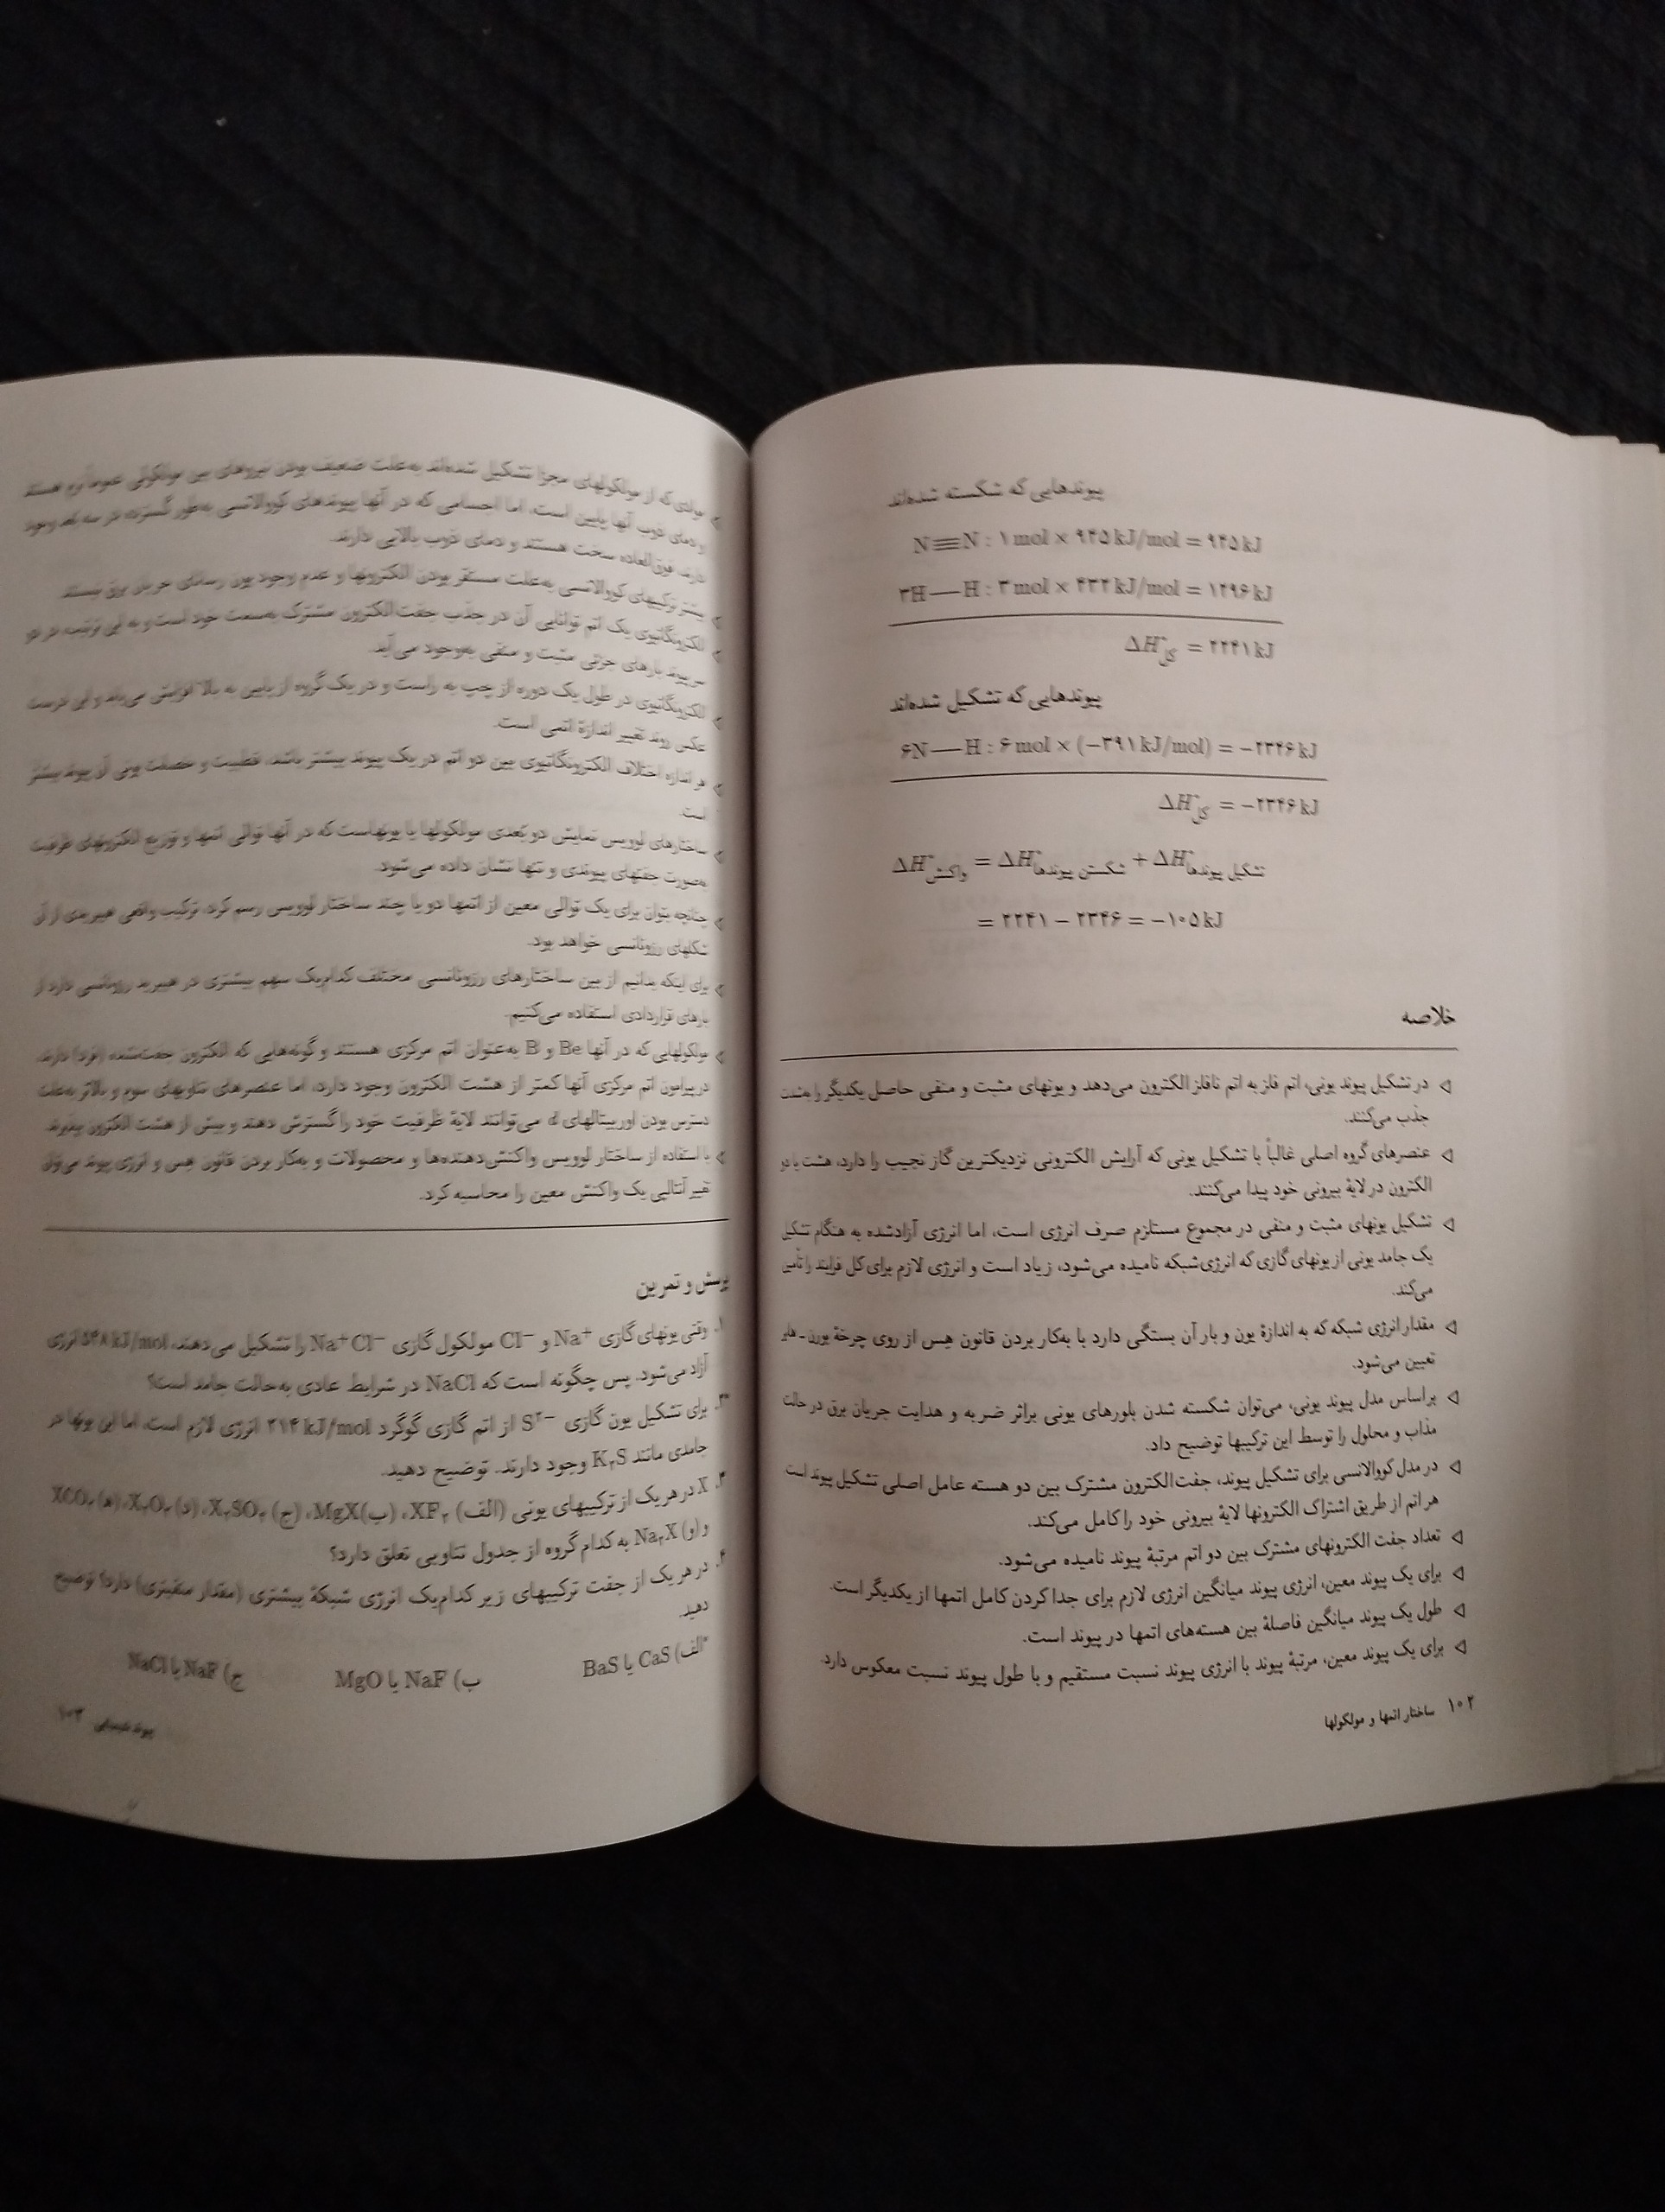 پیوندهایی که شکسته شده‌اند
N≡N : ۱ mol × ۹۴۵ kJ/mol = ۹۴۵ kJ
۳H—H : ۳ mol × ۴۳۲ kJ/mol = ۱۲۹۶ kJ
ΔH°کل = ۲۲۴۱ kJ
پیوندهایی که تشکیل شده‌اند
۶N—H : ۶ mol × (−۳۹۱ kJ/mol) = −۲۳۴۶ kJ
ΔH°کل = −۲۳۴۶ kJ
ΔH°واکنش = ΔH°شکستن پیوندها + ΔH°تشکیل پیوندها
= ۲۲۴۱ − ۲۳۴۶ = −۱۰۵ kJ
خلاصه
◁ در تشکیل پیوند یونی، اتم فلز به اتم نافلز الکترون می‌دهد و یونهای مثبت و منفی حاصل یکدیگر را به‌شدت
جذب می‌کنند.
◁ عنصرهای گروه اصلی غالباً با تشکیل یونی که آرایش الکترونی نزدیکترین گاز نجیب را دارد، هشت یا دو
الکترون در لایهٔ بیرونی خود پیدا می‌کنند.
◁ تشکیل یونهای مثبت و منفی در مجموع مستلزم صرف انرژی است، اما انرژی آزادشده به هنگام تشکیل
یک جامد یونی از یونهای گازی که انرژی شبکه نامیده می‌شود، زیاد است و انرژی لازم برای کل فرایند را تأمین
می‌کند.
◁ مقدار انرژی شبکه که به اندازهٔ یون و بار آن بستگی دارد با به‌کار بردن قانون هِس از روی چرخهٔ بورن ـ هابر
تعیین می‌شود.
◁ براساس مدل پیوند یونی، می‌توان شکسته شدن بلورهای یونی براثر ضربه و هدایت جریان برق در حالت
مذاب و محلول را توسط این ترکیبها توضیح داد.
◁ در مدل کووالانسی برای تشکیل پیوند، جفت‌الکترون مشترک بین دو هسته عامل اصلی تشکیل پیوند است
هر اتم از طریق اشتراک الکترونها لایهٔ بیرونی خود را کامل می‌کند.
◁ تعداد جفت الکترونهای مشترک بین دو اتم مرتبهٔ پیوند نامیده می‌شود.
◁ برای یک پیوند معین، انرژی پیوند میانگین انرژی لازم برای جدا کردن کامل اتمها از یکدیگر است.
◁ طول یک پیوند میانگین فاصلهٔ بین هسته‌های اتمها در پیوند است.
◁ برای یک پیوند معین، مرتبهٔ پیوند با انرژی پیوند نسبت مستقیم و با طول پیوند نسبت معکوس دارد.
۱۰۲ ساختار اتمها و مولکولها
◁ موادی که از مولکولهای مجزا تشکیل شده‌اند به‌علت ضعیف بودن نیروهای بین مولکولی عموماً نرم هستند
و دمای ذوب آنها پایین است، اما اجسامی که در آنها پیوندهای کووالانسی به‌طور گسترده در سه بعد وجود
دارند، فوق‌العاده سخت هستند و دمای ذوب بالایی دارند.
◁ بیشتر ترکیبهای کووالانسی به‌علت مستقر بودن الکترونها و عدم وجود یون رسانای جریان برق نیستند.
◁ الکترونگاتیوی یک اتم توانایی آن در جذب جفت الکترون مشترک به‌سمت خود است و به این ترتیب، در دو
سر پیوند بارهای جزئی مثبت و منفی به‌وجود می‌آید.
◁ الکترونگاتیوی در طول یک دوره از چپ به راست و در یک گروه از پایین به بالا افزایش می‌یابد و این درست
عکس روند تغییر اندازهٔ اتمی است.
◁ هر اندازه اختلاف الکترونگاتیوی بین دو اتم در یک پیوند بیشتر باشد، قطبیت و خصلت یونی آن پیوند بیشتر
است.
◁ ساختارهای لوویس نمایش دو بُعدی مولکولها یا یونهاست که در آنها توالی اتمها و توزیع الکترونهای ظرفیت
به‌صورت جفتهای پیوندی و تنها نشان داده می‌شود.
◁ چنانچه بتوان برای یک توالی معین از اتمها دو یا چند ساختار لوویس رسم کرد، ترکیب واقعی هیبریدی از آن
شکلهای رزونانسی خواهد بود.
◁ برای اینکه بدانیم از بین ساختارهای رزونانسی مختلف کدام‌یک سهم بیشتری در هیبرید رزونانسی دارد از
بارهای قراردادی استفاده می‌کنیم.
◁ مولکولهایی که در آنها Be و B به‌عنوان اتم مرکزی هستند و گونه‌هایی که الکترون جفت‌نشده (فرد) دارند،
در پیرامون اتم مرکزی آنها کمتر از هشت الکترون وجود دارد، اما عنصرهای تناوبهای سوم و بالاتر به‌علت
دسترس بودن اوربیتالهای d می‌توانند لایهٔ ظرفیت خود را گسترش دهند و بیش از هشت الکترون بپذیرند.
◁ با استفاده از ساختار لوویس واکنش‌دهنده‌ها و محصولات و به‌کار بردن قانون هِس و انرژی پیوند می‌توان
تغییر آنتالپی یک واکنش معین را محاسبه کرد.
پرسش و تمرین
۱. وقتی یونهای گازی Na⁺ و Cl⁻ مولکول گازی Na⁺Cl⁻ را تشکیل می‌دهند، ۵۴۸ kJ/mol انرژی
آزاد می‌شود. پس چگونه است که NaCl در شرایط عادی به‌حالت جامد است؟
*۲. برای تشکیل یون گازی S²⁻ از اتم گازی گوگرد ۲۱۴ kJ/mol انرژی لازم است، اما این یونها در
جامدی مانند K₂S وجود دارند. توضیح دهید.
۳. X در هر یک از ترکیبهای یونی (الف) XF₂، (ب) MgX، (ج) X₂SO₄، (د) X₂O₃، (ه) XCO₃
و (و) Na₂X به کدام گروه از جدول تناوبی تعلق دارد؟
۴. در هر یک از جفت ترکیبهای زیر کدام‌یک انرژی شبکهٔ بیشتری (مقدار منفیتری) دارد؟ توضیح
دهید.
*الف) CaS یا BaS ب) NaF یا MgO ج) NaF یا NaCl
پیوند شیمیایی ۱۰۳